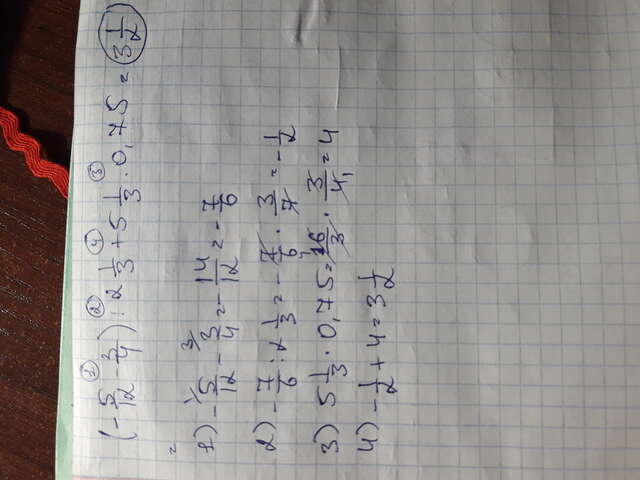 ① ② ④ ③
(-5/12 - 3/4) : 2 1/3 + 5 1/3 · 0,75 = 3 1/2
2
1) -5/12 - 3/4 = -14/12 = -7/6
2) -7/6 : 2 1/3 = -7/6 · 3/7 = -1/2
3) 5 1/3 · 0,75 = 16/3 · 3/4 = 4
4) -1/2 + 4 = 3 1/2